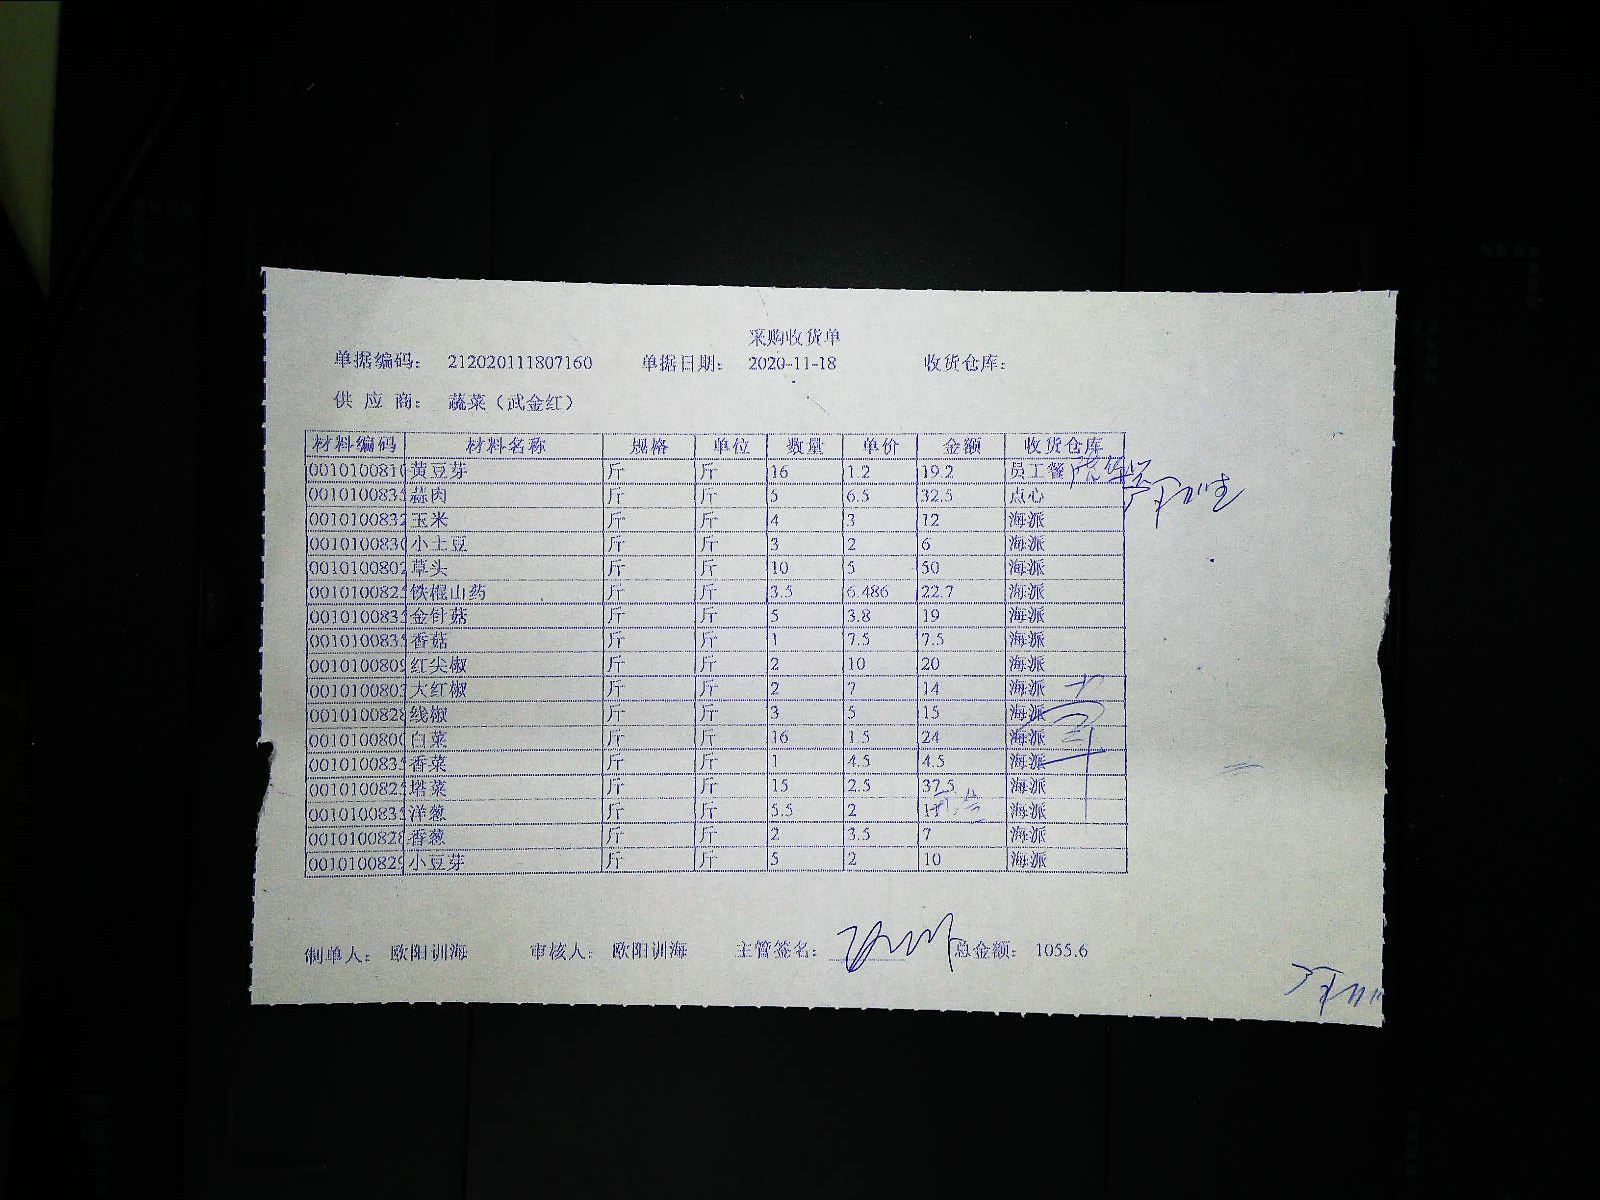 采购收货单
单据编码： 212020111807160 单据日期： 2020-11-18 收货仓库：
供 应 商： 蔬菜（武金红）
材料编码 材料名称 规格 单位 数量 单价 金额 收货仓库
001010081 黄豆芽 斤 斤 16 1.2 19.2 员工餐
001010083 蒜肉 斤 斤 5 6.5 32.5 点心
001010083 玉米 斤 斤 4 3 12 海派
001010083 小土豆 斤 斤 3 2 6 海派
001010080 草头 斤 斤 10 5 50 海派
001010082 铁棍山药 斤 斤 3.5 6.486 22.7 海派
001010083 金针菇 斤 斤 5 3.8 19 海派
001010083 香菇 斤 斤 1 7.5 7.5 海派
001010080 红尖椒 斤 斤 2 10 20 海派
001010080 大红椒 斤 斤 2 7 14 海派
001010082 线椒 斤 斤 3 5 15 海派
001010080 白菜 斤 斤 16 1.5 24 海派
001010083 香菜 斤 斤 1 4.5 4.5 海派
001010082 塔菜 斤 斤 15 2.5 37.5 海派
001010083 洋葱 斤 斤 5.5 2 11 海派
001010082 香葱 斤 斤 2 3.5 7 海派
001010082 小豆芽 斤 斤 5 2 10 海派
制单人： 欧阳训海 审核人： 欧阳训海 主管签名： 总金额： 1055.6